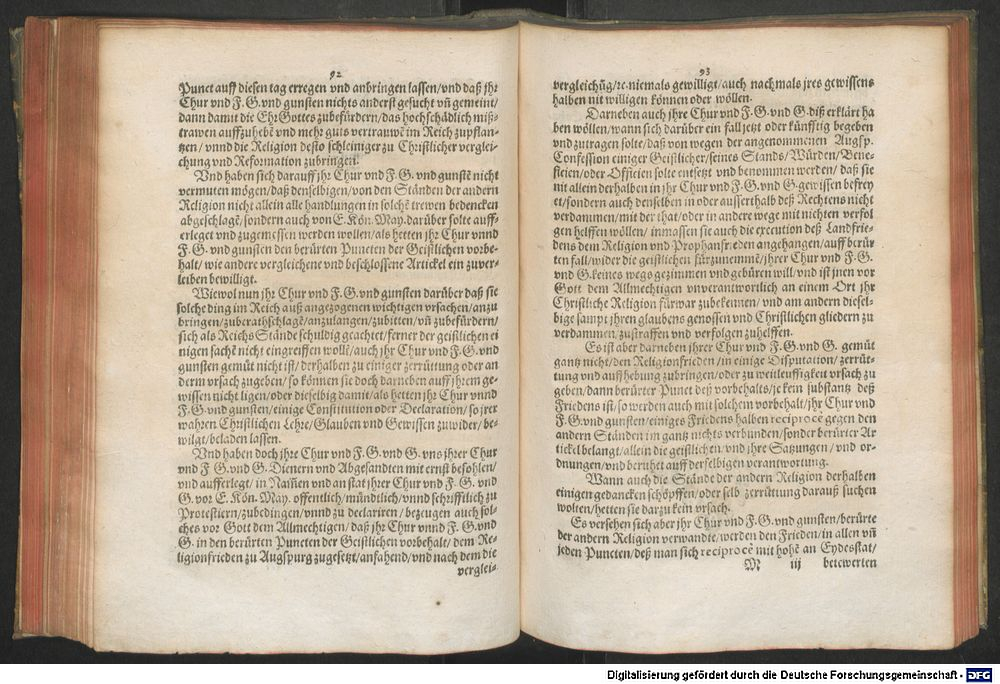 92
Punct auff diesen tag erregen vnd anbringen lassen/vnd daß jhr
Chur vnd F. G. vnd gunsten nichts anderst gesucht vñ gemeint/
dann damit die Ehr Gottes zubefürdern/das hochschädlich miß-
trawen auffzuhebẽ vnd mehr guts vertrauwẽ im Reich zupflan-
tzen/vnnd die Religion desto schleiniger zu Christlicher verglei-
chung vnd Reformation zubringen.
Vnd haben sich darauff jhr Chur vnd F. G. vnd gunstẽ nicht
vermuten mögen/daß denselbigen/von den Ständen der andern
Religion nicht allein alle handlungen in solchẽ trewen bedencken
abgeschlagẽ/sondern auch von E. Kön. May. darüber solte auff-
erleget vnd zugemessen werden wollen/als hetten jhr Chur vnnd
F. G. vnd gunsten den berürten Puncten der Geistlichen vorbe-
halt/wie andere vergleichene vnd beschlossene Artickel ein zuver-
leiben bewilligt.
Wiewol nun jhr Chur vnd F. G. vnd gunsten darüber daß sie
solche ding im Reich auß angezogenen wichtigen vrsachen/anzu
bringen/zuberathschlagẽ/anzulangen/zubitten/vñ zubefürdern/
sich als Reichs Stände schuldig geachtet/ferner der geistlichen ei
nigen sachẽ nicht eingreiffen wollẽ/auch jhr Chur vnd F. G. vnd
gunsten gemüt nicht ist/derhalben zu einiger zerrüttung oder an
derm vrsach zugeben/so können sie doch darneben auff jhrem ge-
wissen nicht ligen/oder dieselbig damit/als hetten jhr Chur vnnd
F. G. vnd gunsten/einige Constitution oder Declaration/so jrer
wahren Christlichen Lehre/Glauben vnd Gewissen zuwider/be-
wilgt/beladen lassen.
Vnd haben doch jhre Chur vnd F. G. vnd G. vns jhrer Chur
vnd F G. vnd G. Dienern vnd Abgesandten mit ernst befohlen/
vnd aufferlegt/in Nam̃en vnd an stat jhrer Chur vnd F. G. vnd
G. vor E. Kön. May. offentlich/mündtlich/vnnd schrifftlich zu
Protestiern/zubedingen/vnnd zu declariren/bezeugen auch sol-
ches vor Gott dem Allmechtigen/daß jhr Chur vnnd F. G. vnd
G. in den berürten Puncten der Geistlichen vorbehalt/dem Re-
ligionfrieden zu Augspurg zugesetzt/anfahend/vnd nach dem die
verglei-
93
vergleichũg/ꝛc niemals gewilligt/auch nachmals jres gewissens
halben nit willigen können oder wöllen.
Darneben auch jhre Chur vnd F. G. vnd G. diß erklärt ha
ben wöllen/wann sich darüber ein fall jetzt oder künfftig begeben
vnd zutragen solte/daß von wegen der angenommenen Augsp.
Confession einiger Geistlicher/seines Stands/Würden/Bene-
ficien/oder Officien solte entsetzt vnd benommen werden/daß sie
nit allein derhalben in jhr Chur vnd F. G. vnd G. gewissen befrey
et/sondern auch denselben in oder ausserthalb deß Rechtens nicht
verdammen/mit der that/oder in andere wege mit nichten verfol
gen helffen wöllen/inmassen sie auch die execution deß Landfrie-
dens dem Religion vnd Prophanfrieden angehangen/auff berür
ten fall/wider die geistlichen fürzunemmẽ/jhrer Chur vnd F. G.
vnd G. keines wegs gezimmen vnd gebüren will/vnd ist jnen vor
Gott dem Allmechtigen vnverantwortlich an einem Ort jhr
Christliche Religion fürwar zubekennen/vnd am andern diesel-
bige sampt jhren glaubens genossen vnd Christlichen gliedern zu
verdammen/zustraffen vnd verfolgen zuhelffen.
Es ist aber darneben jhrer Chur vnd F. G. vnd G. gemüt
gantz nicht/den Religionfrieden/in einige Disputation/zerrüt-
tung vnd auffhebung zubringen/oder zu weitleuffigkeit vrsach zu
geben/dann berürter Punct deß vorbehalts/je kein substantz deß
Friedens ist/so werden auch mit solchem vorbehalt/jhr Chur vnd
F. G. vnd gunsten/einiges Friedens halben reciprocè gegen den
andern Ständen im gantz nichts verbunden/sonder berürter Ar
tickel belangt/allein die geistlichen/vnd jhre Satzungen/vnd or-
dnungen/vnd beruhet auff derselbigen verantwortung.
Wann auch die Stände der andern Religion derhalben
einigen gedancken schöpffen/oder selb zerrüttung darauß suchen
wolten/hetten sie darzu kein vrsach.
Es versehen sich aber jhr Chur vnd F. G. vnd gunsten/berürte
der andern Religion verwandte/werden den Frieden/in allen vñ
jeden Puncten/deß man sich reciprocè mit hohẽ an Eydesstat/
M iij betewerten
Digitalisierung gefördert durch die Deutsche Forschungsgemeinschaft - DFG